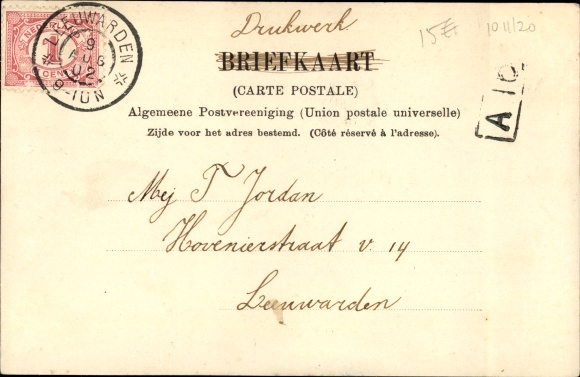 Drukwerk
15 E
10 11/20
LEEUWARDEN
9 AUG 02
9-10N
NEDERLAND
1
CENT
BRIEFKAART
(CARTE POSTALE)
Algemeene Postvereeniging (Union postale universelle)
Zijde voor het adres bestemd. (Côté réservé à l'adresse).
A 10
Mej T Jordan
Hovenierstraat v. 14
Leeuwarden